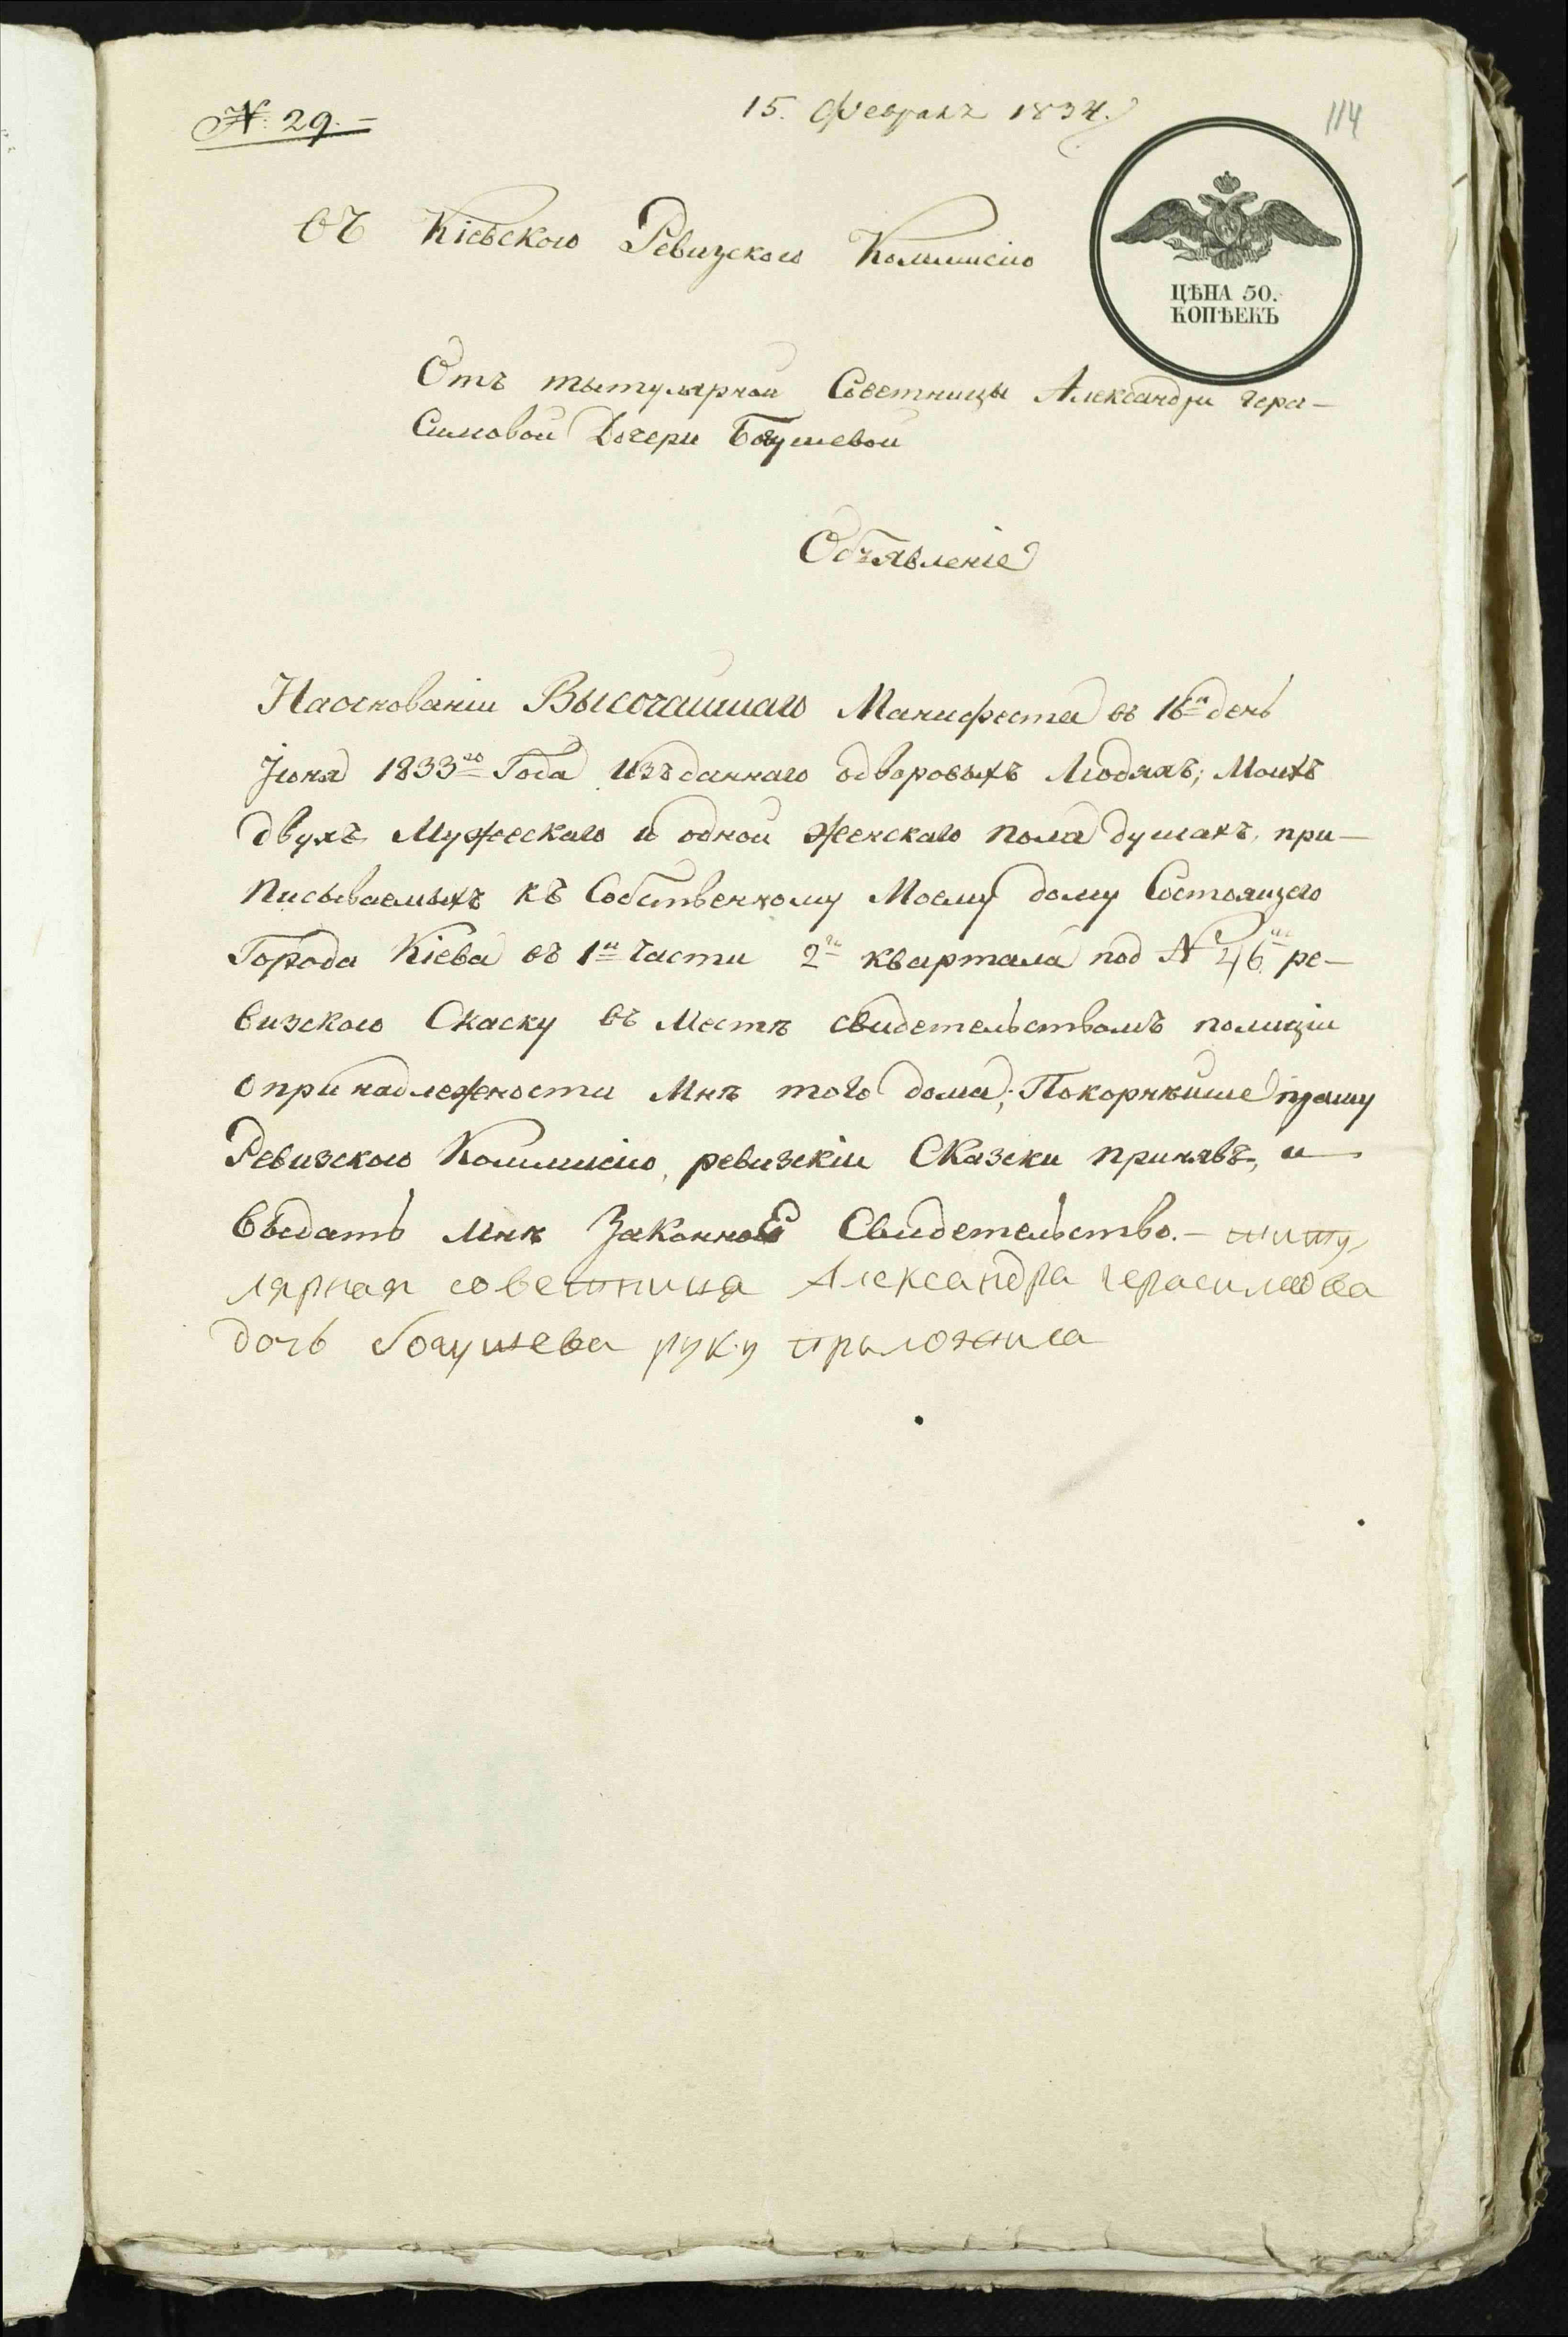 № 29.
15. Февраля 1834.
114
въ Кіевскою Ревизскою Коммисію
ЦѢНА 50.
КОПѢЕКЪ
Отъ тытулярной Советницы Александры Гера-
симовой Дочери Богушевой
Объявленіе
Наоснованіи Высочаишаго Манифеста въ 16й день
Іюня 1833го Года изъданнаго одворовыхъ Людяхъ; Моихъ
двухъ Мужескаго и одной женскаго пола душахъ, при-
писываемыхъ къ Собственному Моему дому Состоящего
Города Кіева въ 1й Части 2го квартала под № 46м ре-
визскою Скаску въ Местѣ свидетельствомъ полиціи
опринадлежности Мнѣ того дома; Покорнѣише прошу
Ревизскою Коммисію, ревизскіи Сказки принявъ, и
выдать Мнѣ Законное Свидетельство.- титу
лярная советница Александра Герасимова
дочь Богушева руку прыложила